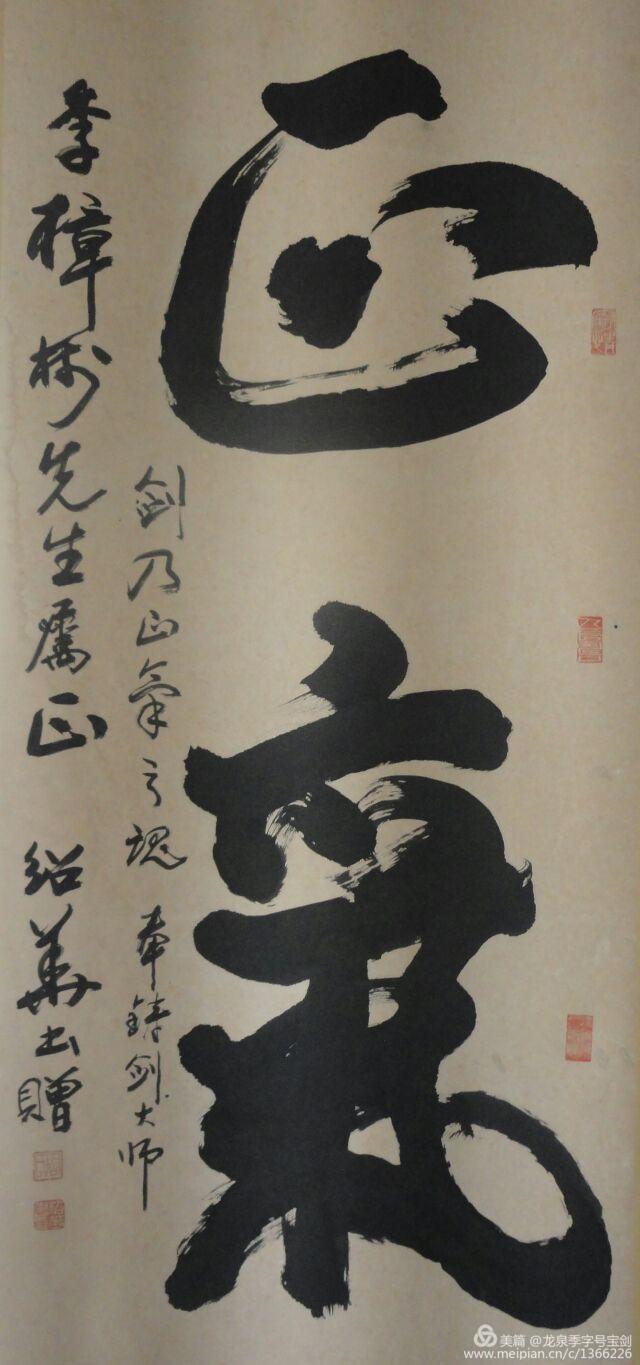 正氣
剑乃正氣之魂 奉铸剑大师
季樟树先生属正 绍华书赠
美篇 @龙泉季字号宝剑
www.meipian.cn/c/1366226